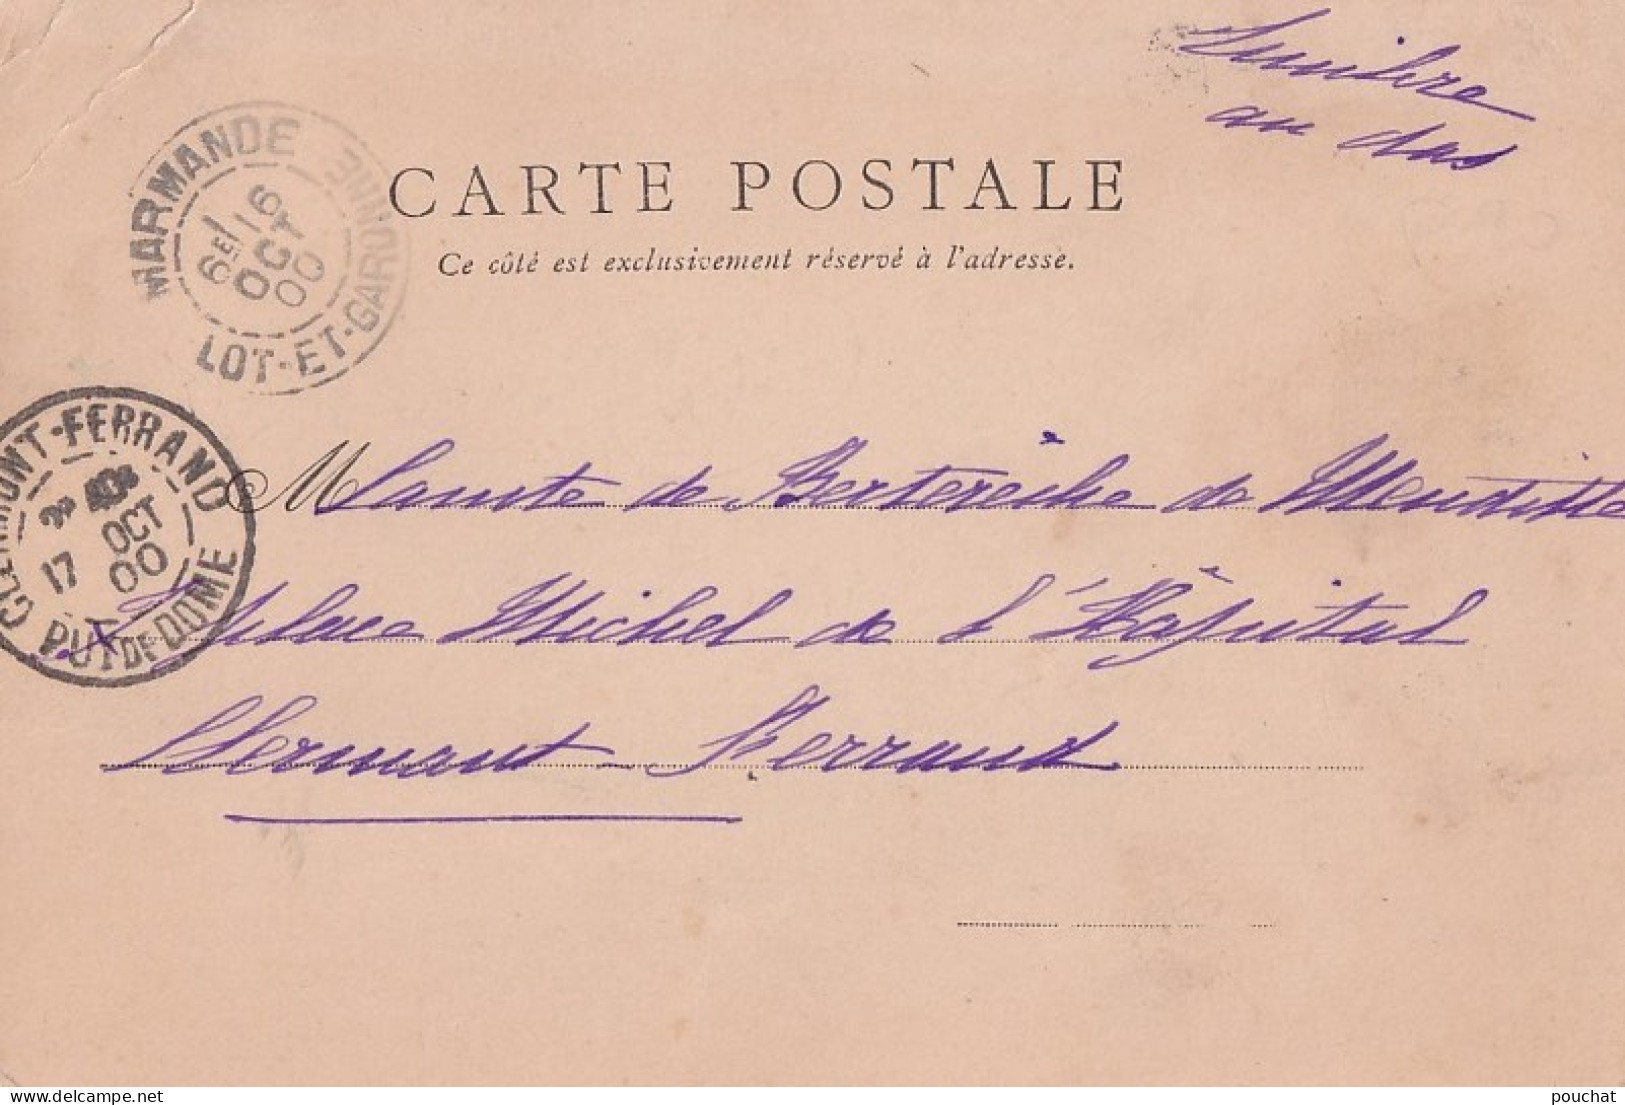 Timbre
au dos
MARMANDE
LOT-ET-GARONNE
6E/16
OCT
00
CARTE POSTALE
Ce côté est exclusivement réservé à l'adresse.
CLERMONT-FERRAND
PUY DE DOME
17 OCT
00
M de de
Michel de l'Hôpital
Clermont-Ferrand
delcampe.net
pouchat